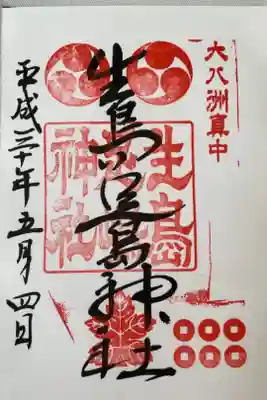 大八洲真中
生島足島神社
平成三十年五月四日
生島
神社